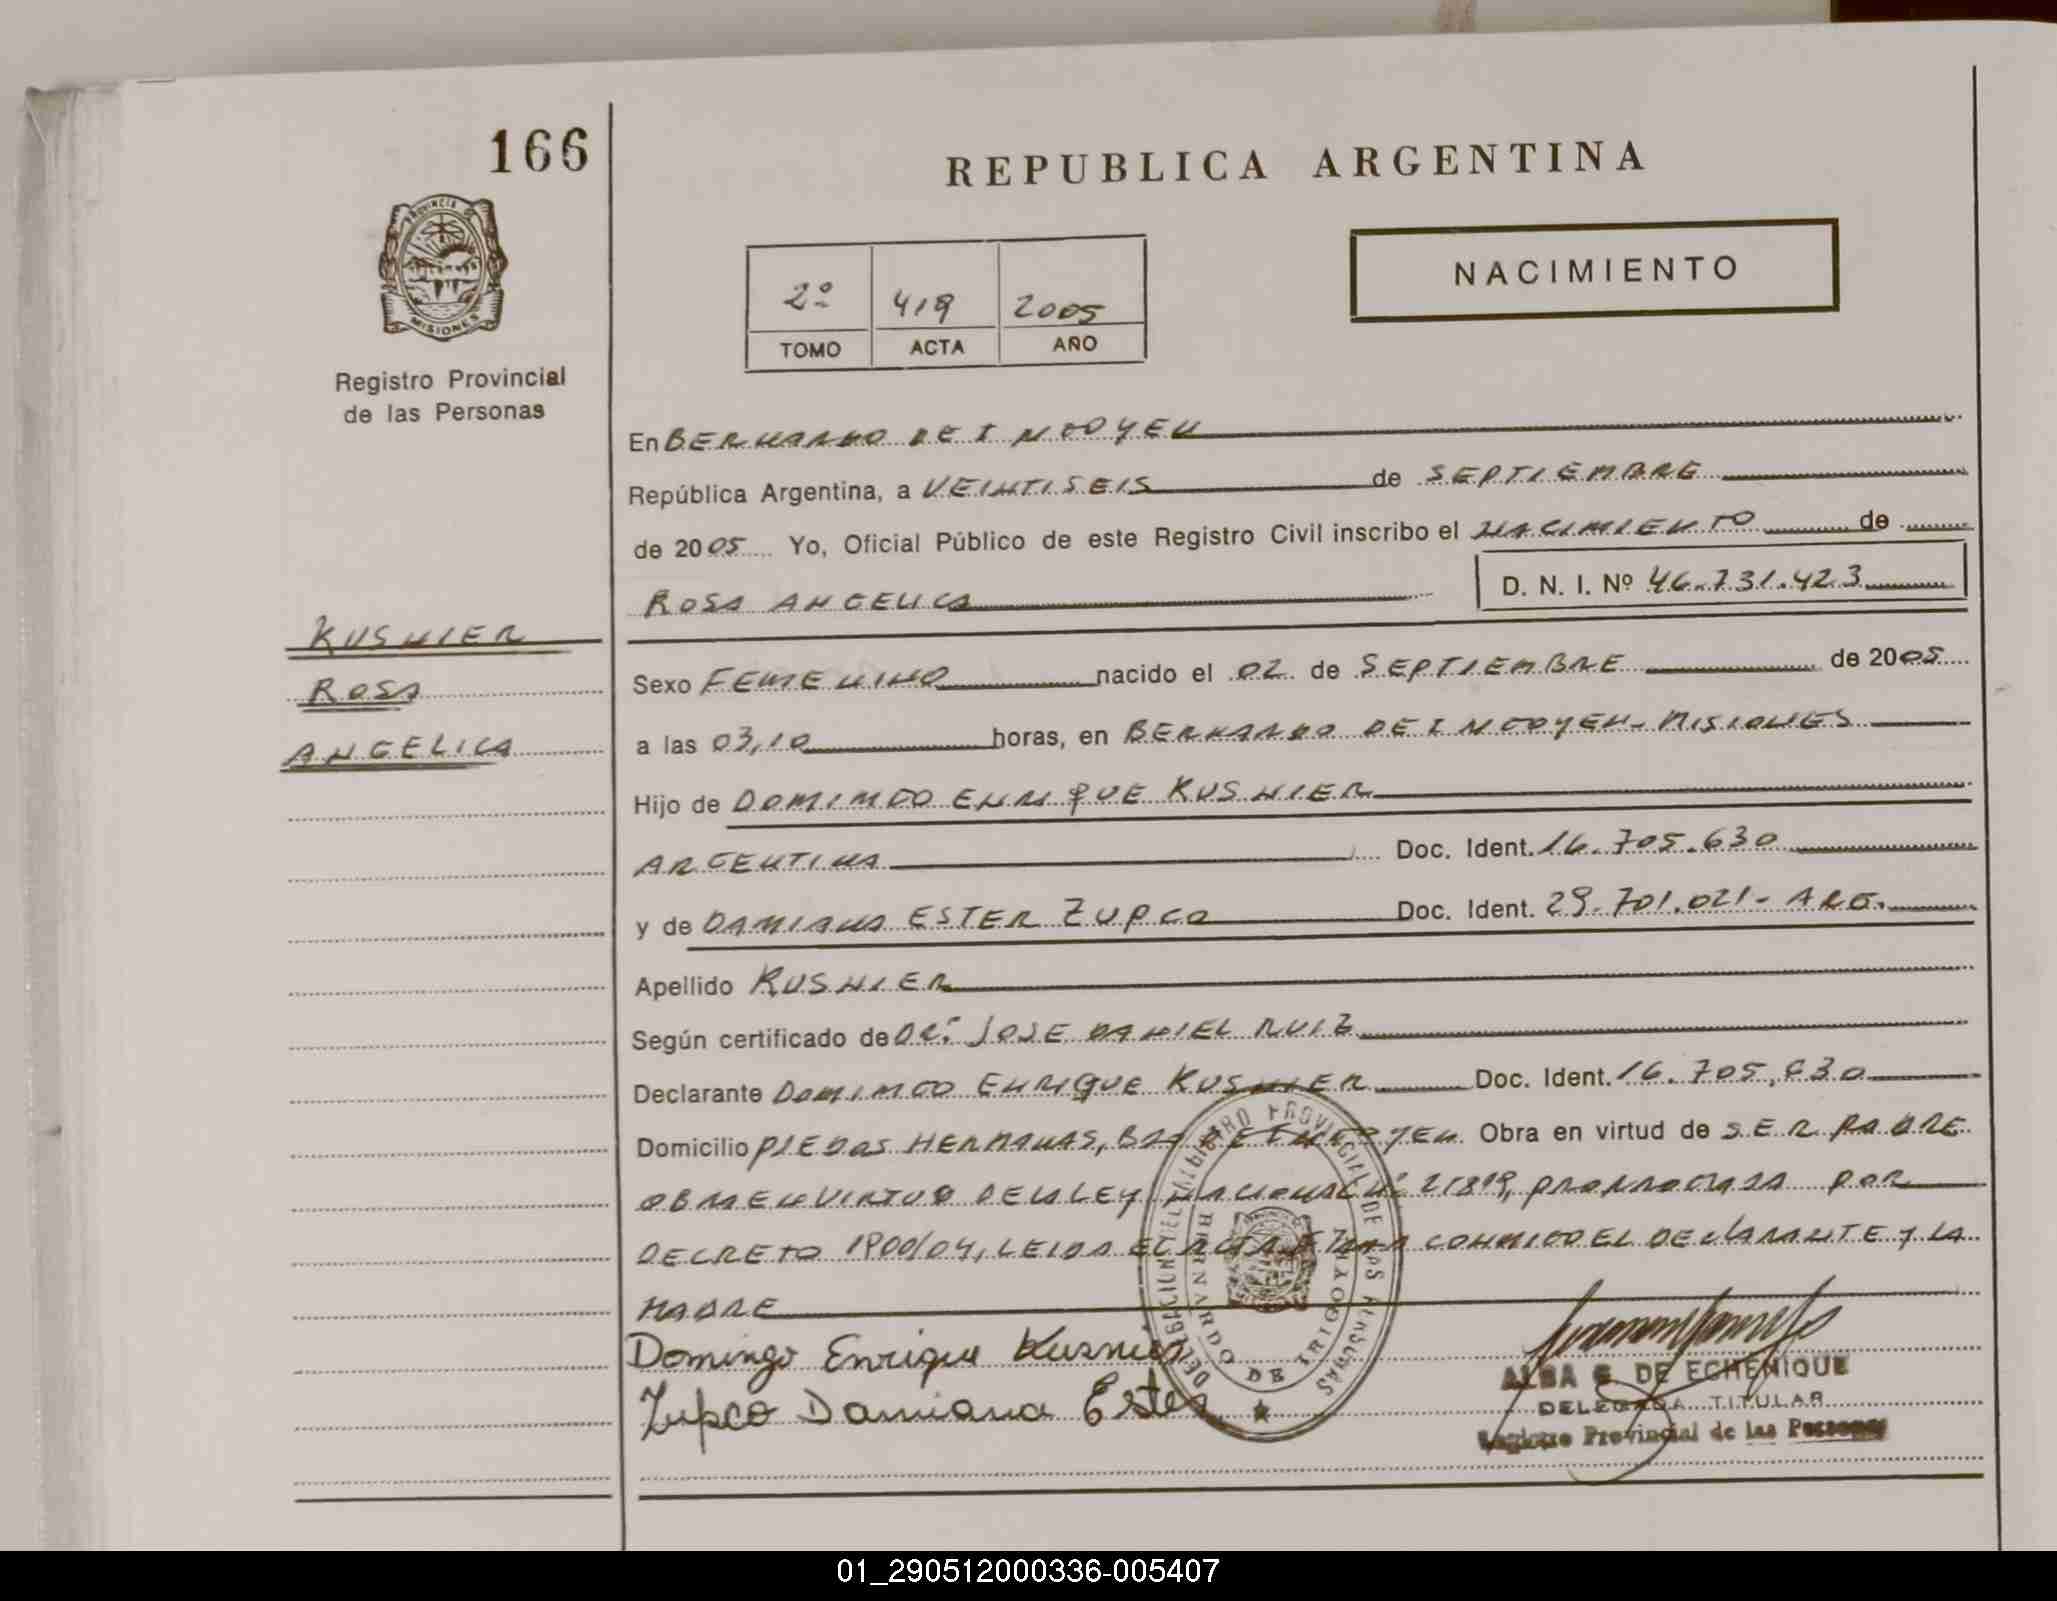 166
PROVINCIA DE
MISIONES
Registro Provincial
de las Personas
REPUBLICA ARGENTINA
NACIMIENTO
2º 419 2005
TOMO ACTA AÑO
En BERNARDO DE IRIGOYEN
República Argentina, a VEINTISEIS de SEPTIEMBRE
de 2005 Yo, Oficial Público de este Registro Civil inscribo el NACIMIENTO de
ROSA ANGELICA D. N. I. Nº 46.731.423
KUSNIER
ROSA
ANGELICA
Sexo FEMENINO nacido el 02 de SEPTIEMBRE de 2005
a las 03,10 horas, en BERNARDO DE IRIGOYEN - MISIONES
Hijo de DOMINGO ENRIQUE KUSNIER
ARGENTINA Doc. Ident. 16.705.630
y de DAMIANA ESTER ZUPCO Doc. Ident. 29.701.021 - ARG.
Apellido KUSNIER
Según certificado de DR. JOSE DANIEL RUIZ
Declarante DOMINGO ENRIQUE KUSNIER Doc. Ident. 16.705.630
Domicilio PIEDAS HERMANAS, Obra en virtud de SER PADRE
OBRA EN VIRTUD DE LA LEY NACIONAL Nº 21819, PRORROGADA POR
DECRETO 1900/04, LEIDA EL ACTA FIRMA CONMIGO EL DECLARANTE Y LA
MADRE
Domingo Enrique Kusnier
Zupco Damiana Ester
DELEGACION DEL REGISTRO PROVINCIAL DE LAS PERSONAS
BERNARDO DE IRIGOYEN
ALBA G. DE ECHENIQUE
DELEGADA TITULAR
Registro Provincial de las Personas
01_290512000336-005407